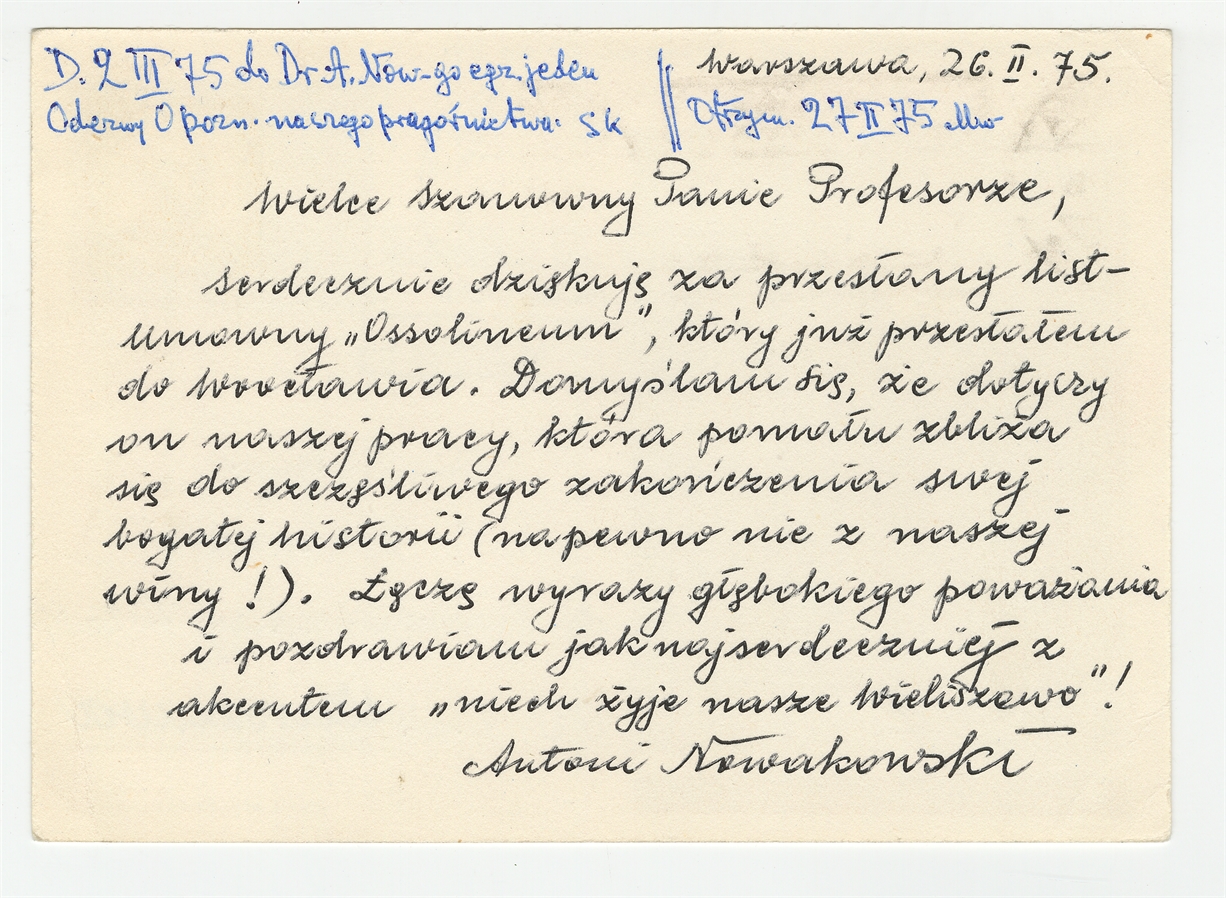 D. 2 III 75 do Dr A. Now-go egz. jeden
Odezwy O pozn. naszego pragórnictwa. SK
Warszawa, 26. II. 75.
Otrzym. 27 II 75
Wielce Szanowny Panie Profesorze,
serdecznie dziękuję za przesłany list-
umowny „Ossolineum”, który już przesłałem
do Wrocławia. Domyślam się, że dotyczy
on naszej pracy, która pomału zbliża
się do szczęśliwego zakończenia swej
bogatej historii (napewno nie z naszej
winy!). Łączę wyrazy głębokiego poważania
i pozdrawiam jaknajserdeczniej z
akcentem „niech żyje nasze Wieliszewo”!
Antoni Nowakowski